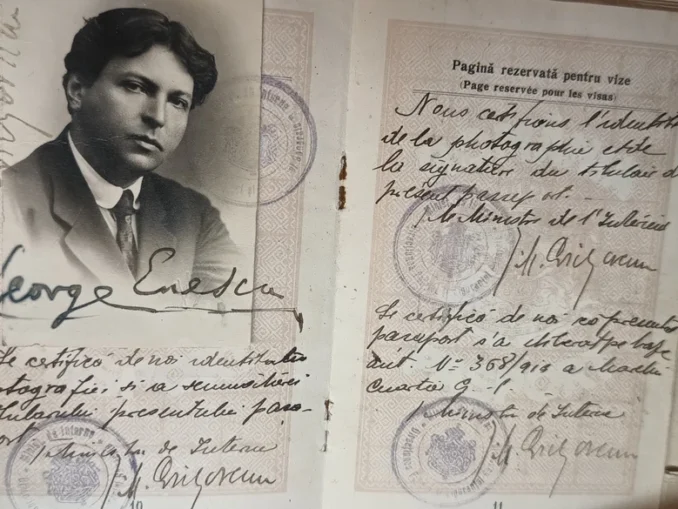 George Enescu
Se certifică de noi identitatea
fotografiei și a semnăturei
titularului presentului pașa-
port
p. Ministru de Interne
M. Grigorcea
10
Pagină rezervată pentru vize
(Page reservée pour les visas)
Nous certifions l'identité
de la photographie et de
la signature du titulaire d
présent passeport. -
p. le Ministre de l'Intérieur
Se certifică de noi că presentul
pașaport s'a eliberat pe baza
aut. No 368/
p. Ministru de Interne
11